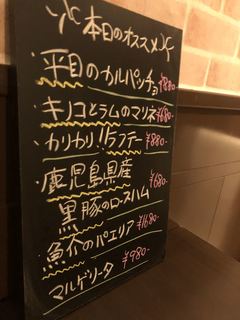 本日のオススメ
・平目のカルパッチョ ¥880-
・キノコとラムのマリネ ¥680-
・カリカリ!!ラフテー ¥880-
・鹿児島県産
黒豚のロースハム ¥680-
・魚介のパエリア ¥1680-
・マルゲリータ ¥980-